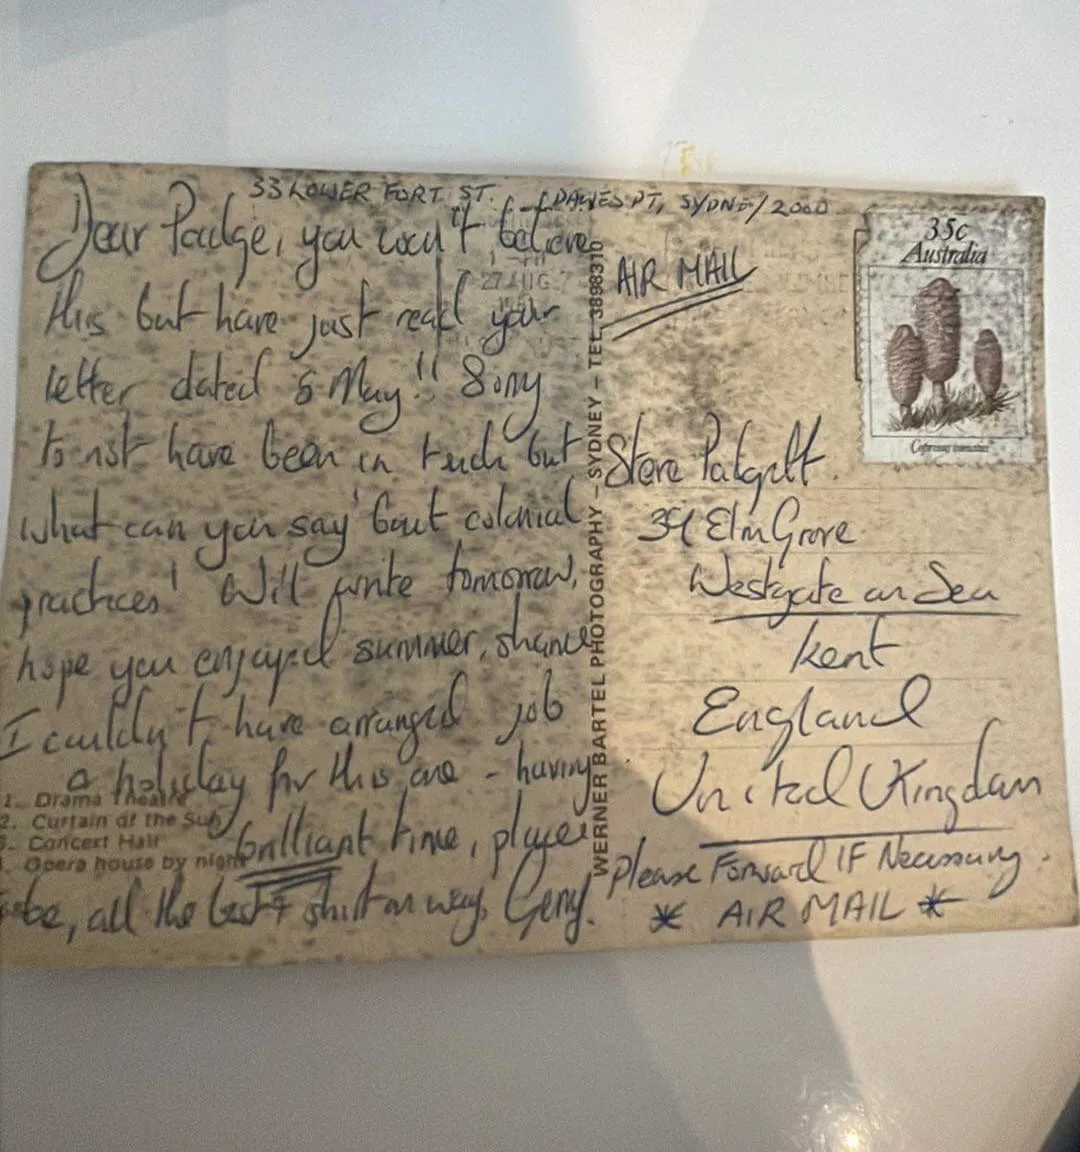 33 LOWER FORT ST. DAWES PT, SYDNEY 2000
Dear Padge, you won't believe
this but have just read your
letter dated 5 May!! Sorry
to not have been in touch but
what can you say 'bout colonial
practices! Will write tomorrow,
hope you enjoyed summer, shame
I couldn't have arranged job
a holiday for this one - having
brilliant time, place
be, all the best & shirt on way. Gerry.
1. Drama Theatre
2. Curtain of the Sun
3. Concert Hall
4. Opera house by night
WERNER BARTEL PHOTOGRAPHY – SYDNEY – TEL. 3898310
27 AUG
AIR MAIL
35c
Australia
Coprinus comatus
Steve
39 Elm Grove
Westgate on Sea
Kent
England
United Kingdom
Please Forward IF Necessary.
* AIR MAIL *